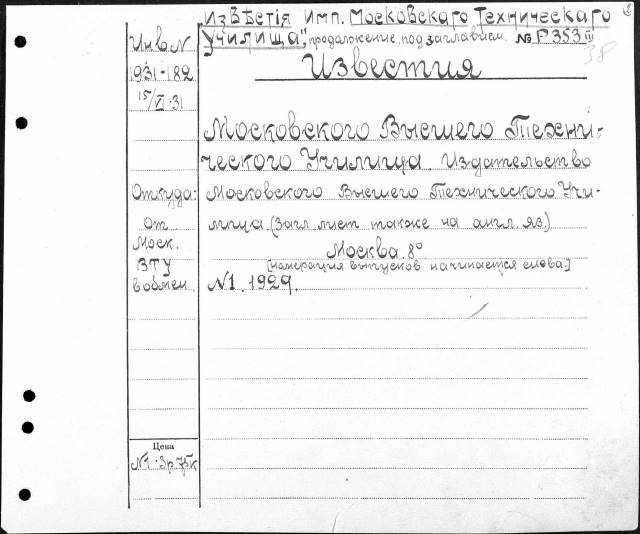 Извѣстія Имп. Московскаго Техническаго
Училища", продолжение под заглавием. № P.353 III
38
Известия
Инв. N
1931-182
15/VI-31
Московского Высшего Техни-
ческого Училища. Издательство
Московского Высшего Технического Учи-
лища. (Загл. лист также на англ. яз.)
Москва. 8°
[нумерация выпусков начинается снова.]
N1. 1929.
Откуда:
От
Моск.
ВТУ
в обмен.
Цена
N1-3р.75к